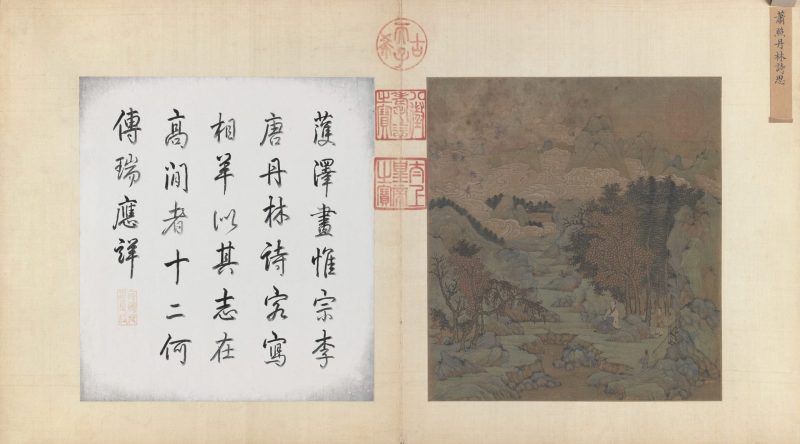 蕭照丹林詩思
古希天子
八徵耄念之寶
太上皇帝之寶
濩澤畫惟宗李
唐丹林詩客寫
相羊以其志在
高閒者十二何
傳瑞應詳